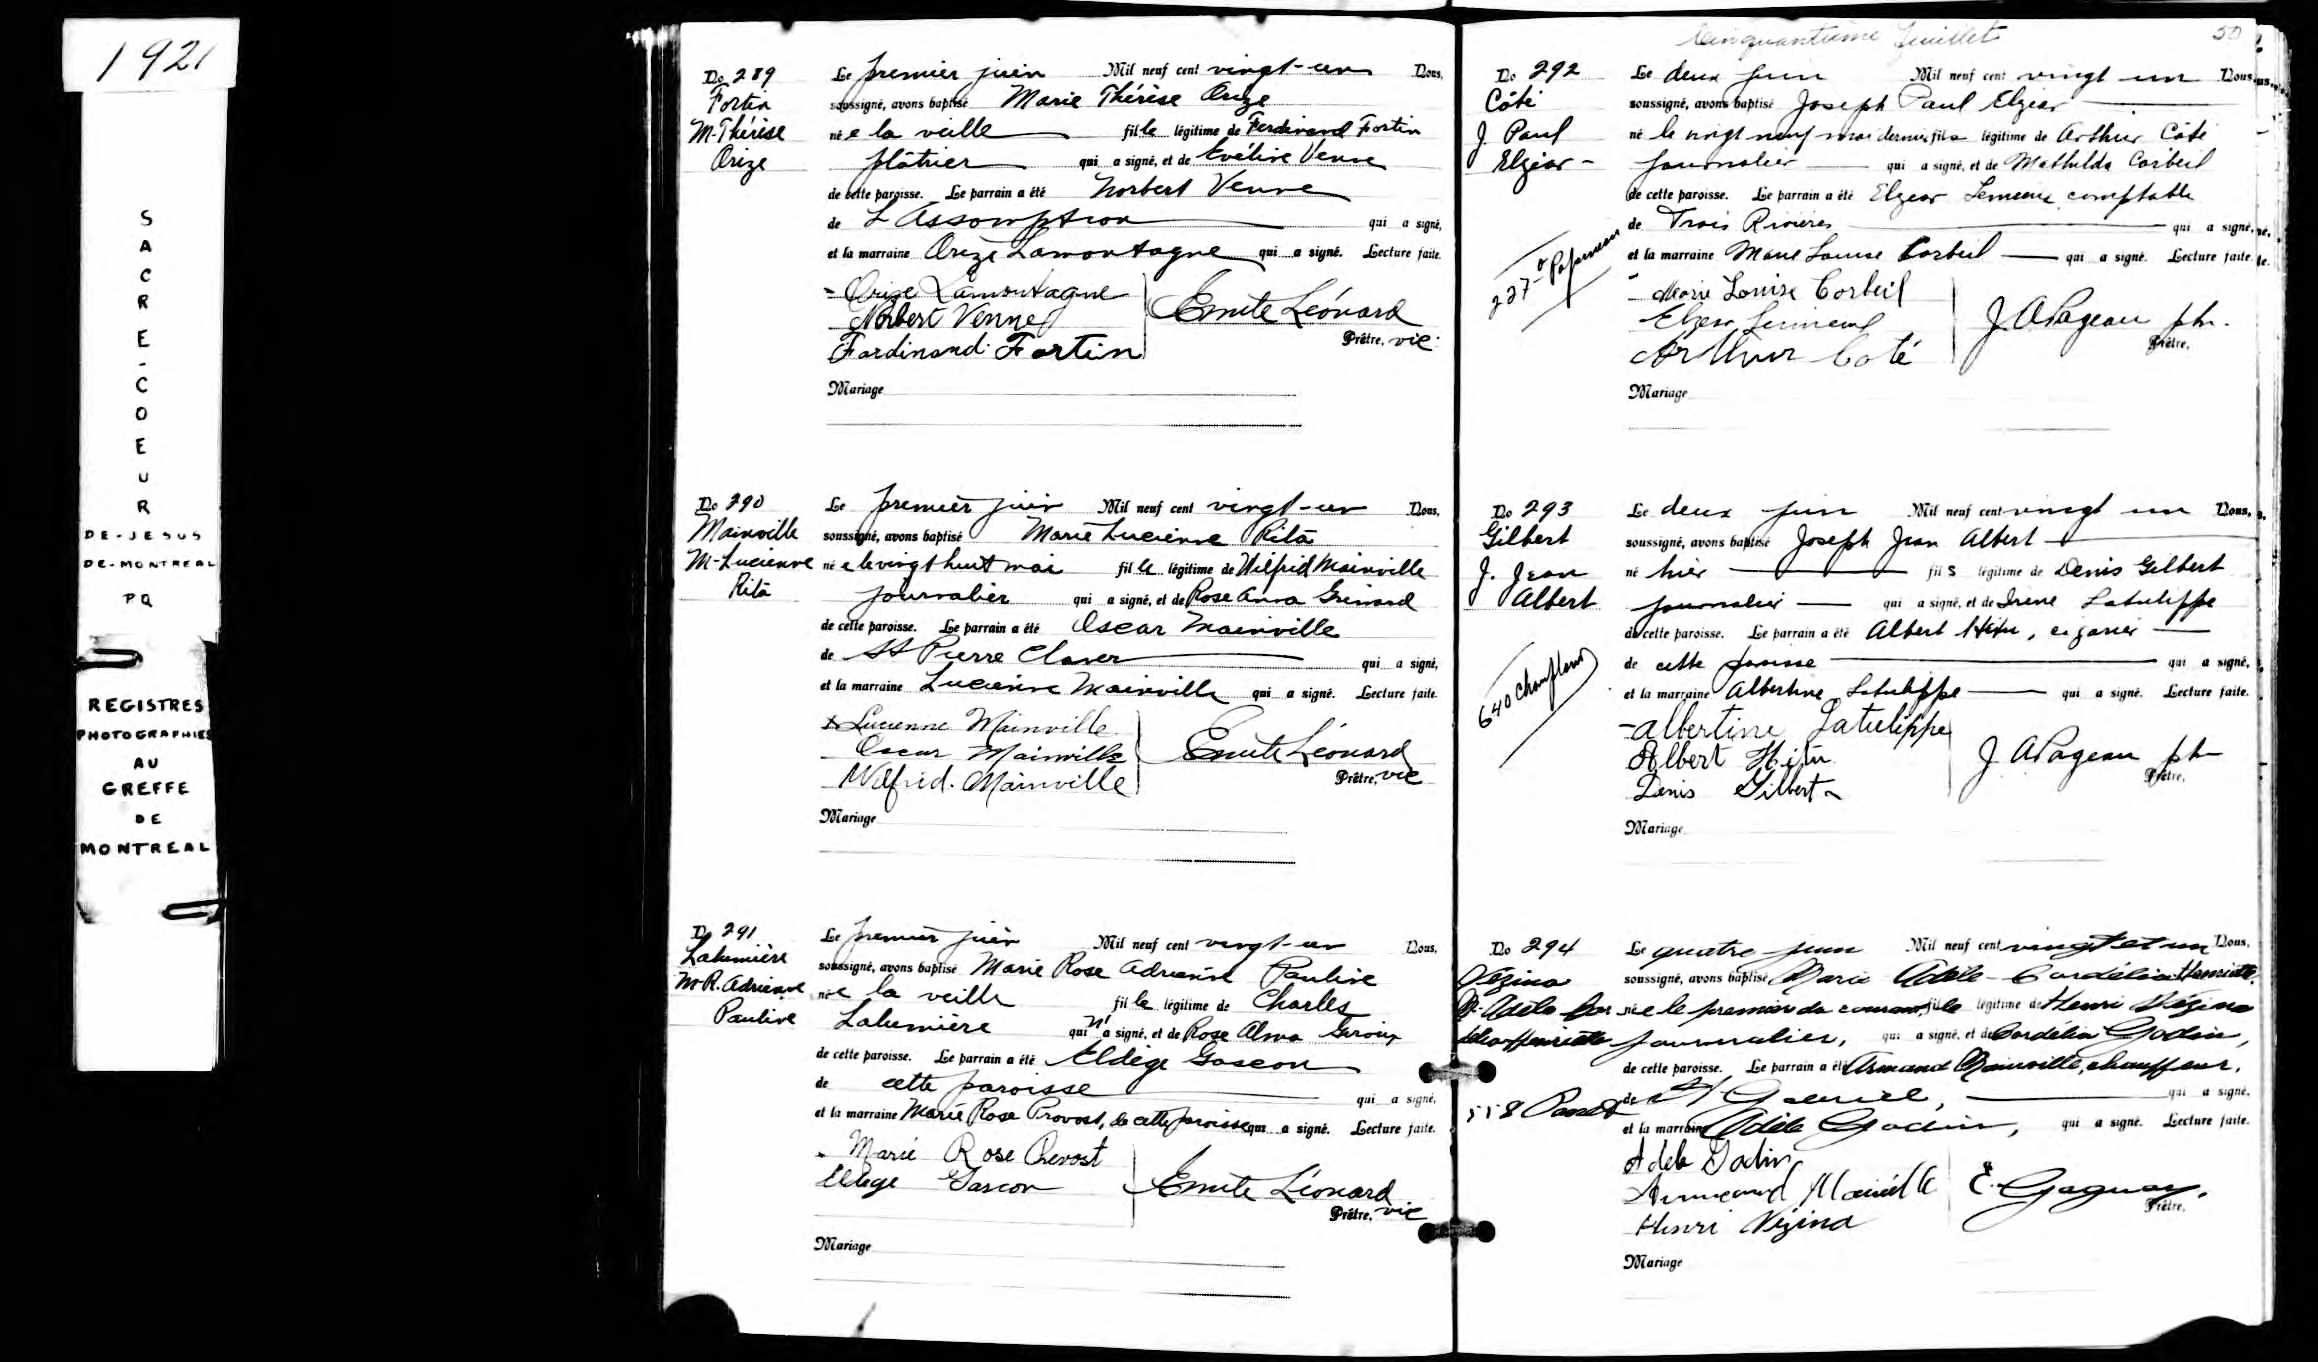 1921
SACRE-COEUR
DE-JESUS
DE-MONTREAL
PQ
REGISTRES
PHOTOGRAPHIES
AU
GREFFE
DE
MONTREAL
No 289
Fortin
M-Thérèse
Orize
Le premier juin Mil neuf cent vingt-un Nous,
soussigné, avons baptisé Marie Thérèse Orize
née la veille fille légitime de Ferdinand Fortin
plâtrier qui a signé, et de Evéline Venne
de cette paroisse. Le parrain a été Norbert Venne
de L'Assomption qui a signé,
et la marraine Orize Lamontagne qui a signé. Lecture faite.
Orize Lamontagne
Norbert Venne
Ferdinand Fortin
Emile Léonard
Prêtre, vic.
Mariage
No 290
Mainville
M-Lucienne
Rita
Le premier juin Mil neuf cent vingt-un Nous,
soussigné, avons baptisé Marie Lucienne Rita
née le vingt huit mai fille légitime de Wilfrid Mainville
journalier qui a signé, et de Rose Anna
de cette paroisse. Le parrain a été Oscar Mainville
de St Pierre Claver qui a signé,
et la marraine Lucienne Mainville qui a signé. Lecture faite.
Lucienne Mainville
Oscar Mainville
Wilfrid. Mainville
Emile Léonard
Prêtre, vic
Mariage
No 291
Lalumière
M-R. Adrienne
Pauline
Le premier juin Mil neuf cent vingt-un Nous,
soussigné, avons baptisé Marie Rose Adrienne Pauline
née la veille fille légitime de Charles
Lalumière qui n'a signé, et de Rose Alma Giroux
de cette paroisse. Le parrain a été Eldège Gascon
de cette paroisse qui a signé,
et la marraine Marie Rose Provost, de cette paroisse qui a signé. Lecture faite.
Marie Rose Prevost
Eldege Gascon
Emile Léonard
Prêtre, vic
Mariage
Cinquantième feuillet 50
No 292
Côté
J. Paul
Elzéar
Le deux juin Mil neuf cent vingt un Nous,
soussigné, avons baptisé Joseph Paul Elzéar
né le vingt neuf mai dernier fils légitime de Arthur Côté
journalier qui a signé, et de Mathilda Corbeil
de cette paroisse. Le parrain a été Elzear Lemieux comptable
de Trois Rivières qui a signé,
et la marraine Marie Louise Corbeil qui a signé. Lecture faite.
227 Papineau
Marie Louise Corbeil
Elzear Lemieux
Arthur Coté
J A Pageau ptr.
Prêtre.
Mariage
No 293
Gilbert
J. Jean
Albert
Le deux juin Mil neuf cent vingt un Nous,
soussigné, avons baptisé Joseph Jean Albert
né hier fils légitime de Denis Gilbert
journalier qui a signé, et de Irene Latulippe
de cette paroisse. Le parrain a été Albert cigarier
de cette paroisse qui a signé,
et la marraine Albertine Latulippe qui a signé. Lecture faite.
640 Champlain
Albertine Latulippe
Albert
Denis Gilbert
J A Pageau ptr
Prêtre.
Mariage
No 294
Vézina
M. Adèle Cor
délia Henriette
Le quatre juin Mil neuf cent vingt et un Nous,
soussigné, avons baptisé Marie Adèle Cordélia Henriette,
née le premier du courant, fille légitime de Henri Vézina
journalier, qui a signé, et de Cordélia Godin,
de cette paroisse. Le parrain a été Armand Mainville, chauffeur,
de St Gabriel, qui a signé,
et la marraine Adèle Godin, qui a signé. Lecture faite.
558 Panet
Adèle Godin
Armand Mainville
Henri Vézina
E. Gagnon,
Prêtre.
Mariage